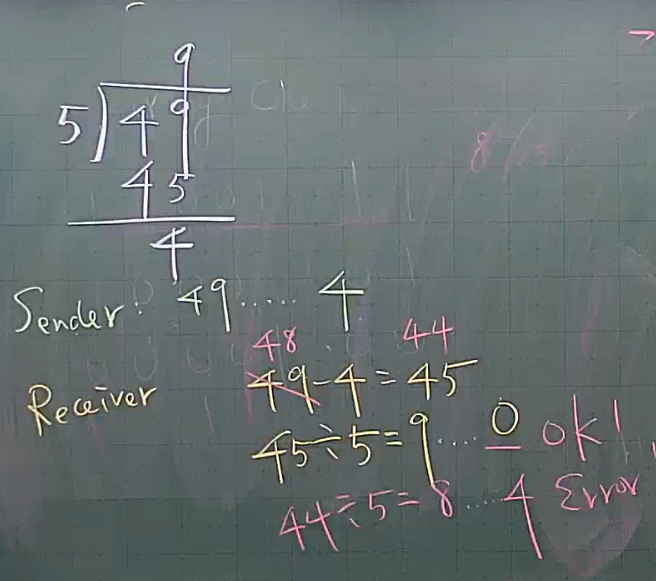 9
5)49
45
4
Sender: 49..... 4
48 44
Receiver 49-4=45
45÷5=9....0 ok!
44÷5=8....4 Error!